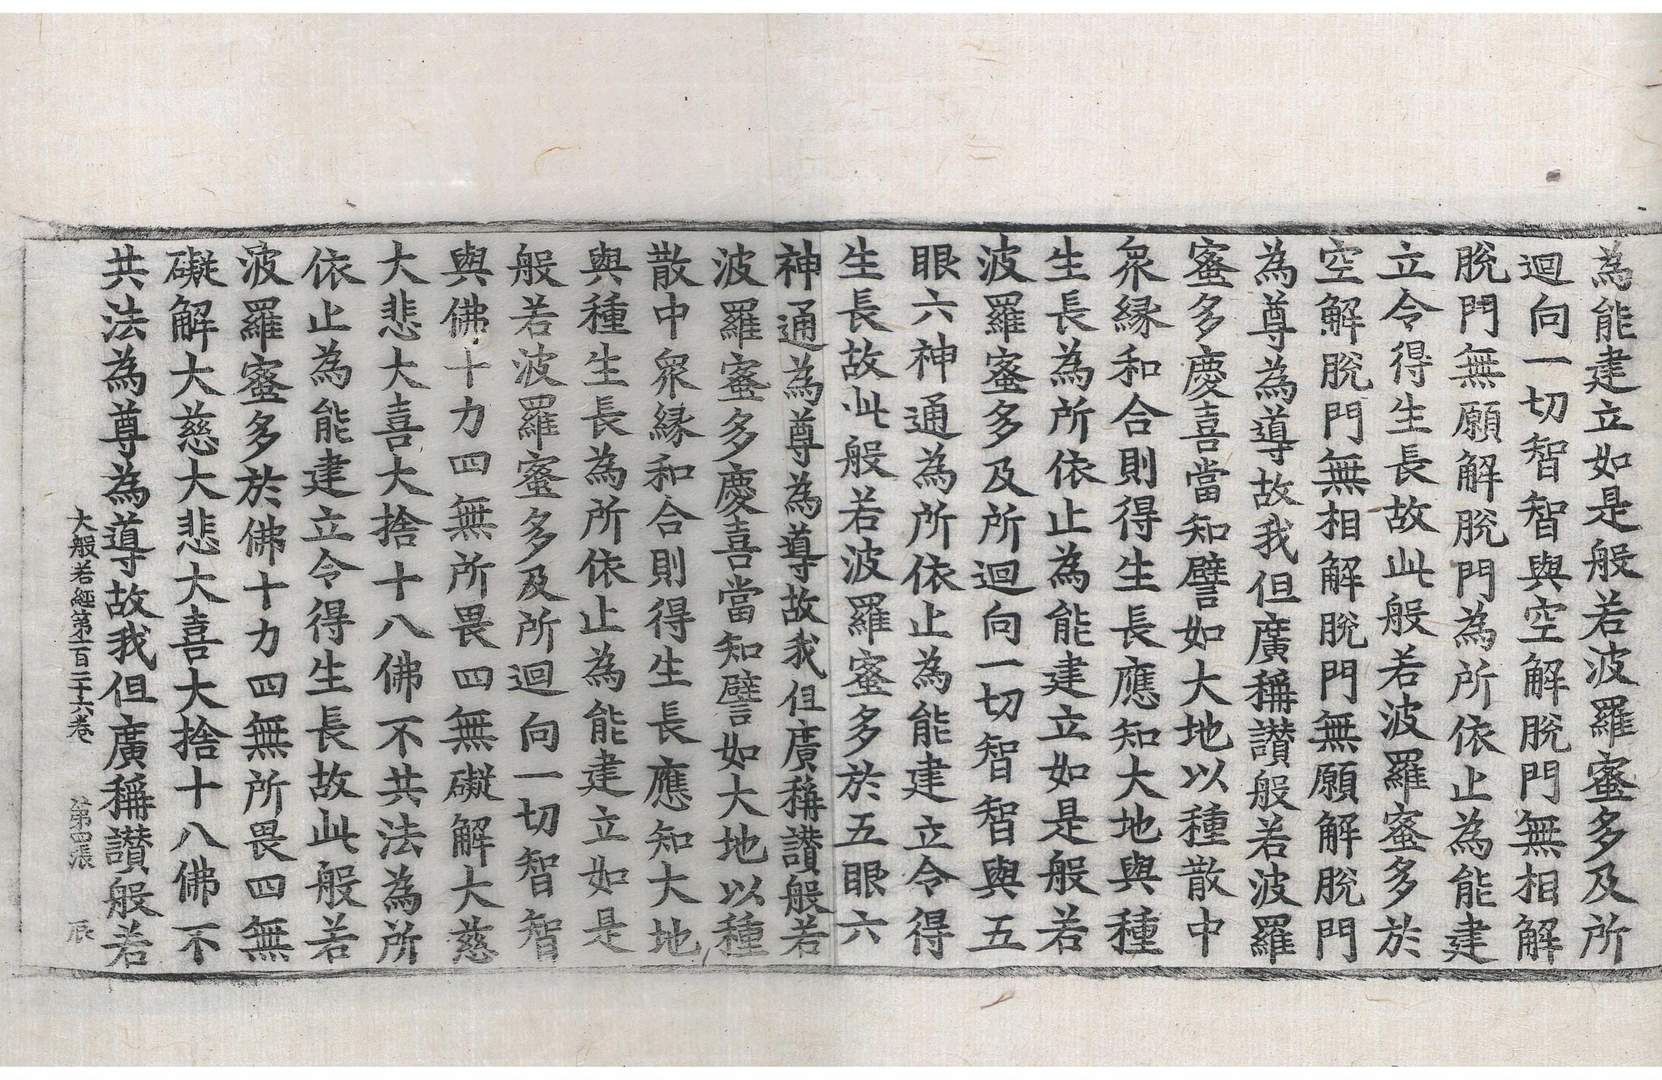 為能建立如是般若波羅蜜多及所
迴向一切智智與空解脫門無相解
脫門無願解脫門為所依止為能建
立令得生長故此般若波羅蜜多於
空解脫門無相解脫門無願解脫門
為尊為導故我但廣稱讃般若波羅
蜜多慶喜當知譬如大地以種散中
衆縁和合則得生長應知大地與種
生長為所依止為能建立如是般若
波羅蜜多及所迴向一切智智與五
眼六神通為所依止為能建立令得
生長故此般若波羅蜜多於五眼六
神通為尊為導故我但廣稱讃般若
波羅蜜多慶喜當知譬如大地以種
散中衆縁和合則得生長應知大地
與種生長為所依止為能建立如是
般若波羅蜜多及所迴向一切智智
與佛十力四無所畏四無礙解大慈
大悲大喜大捨十八佛不共法為所
依止為能建立令得生長故此般若
波羅蜜多於佛十力四無所畏四無
礙解大慈大悲大喜大捨十八佛不
共法為尊為導故我但廣稱讃般若
大般若經第一百二十六卷 第四張 辰